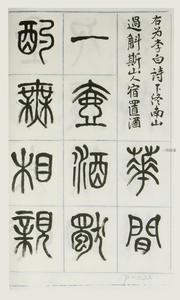 右為李白詩下終南山
過斛斯山人宿置酒
華間
一壺酒獨
酌無相親